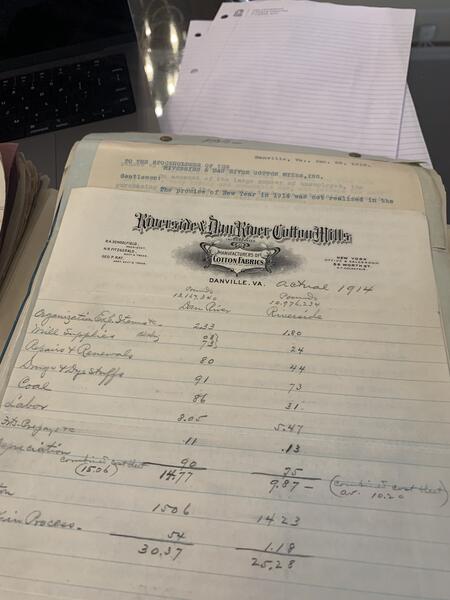 Danville, Va., Dec. 22, 1915.
TO THE STOCKHOLDERS OF THE
RIVERSIDE & DAN RIVER COTTON MILLS, INC.
Gentlemen:
The promise of New Year in 1914 was not realized in the
Riverside & Dan River Cotton Mills
MANUFACTURERS OF
COTTON FABRICS
R.A. SCHOOLFIELD
PRESIDENT
H.R. FITZGERALD
SECY & TREAS.
GEO. P. RAY
ASST. SECY & TREAS.
NEW YORK
OFFICE & SALESROOM
DANVILLE, VA.
Actual 1914
Pounds Pounds
Dan River Riverside
Organization Exp. Items &c. 2.33 1.80
Mill Supplies 24
Repairs & Renewals 80 44
Drugs & Dye Stuffs 91 73
Coal 86 31
Labor 8.05 5.47
.11 .13
90 75
Combined cost sheet (15.06) 14.77 9.87 — (Combined cost sheet av. 10.20)
15 06 14 23
in Process. 54 1.18
30.37 25.28